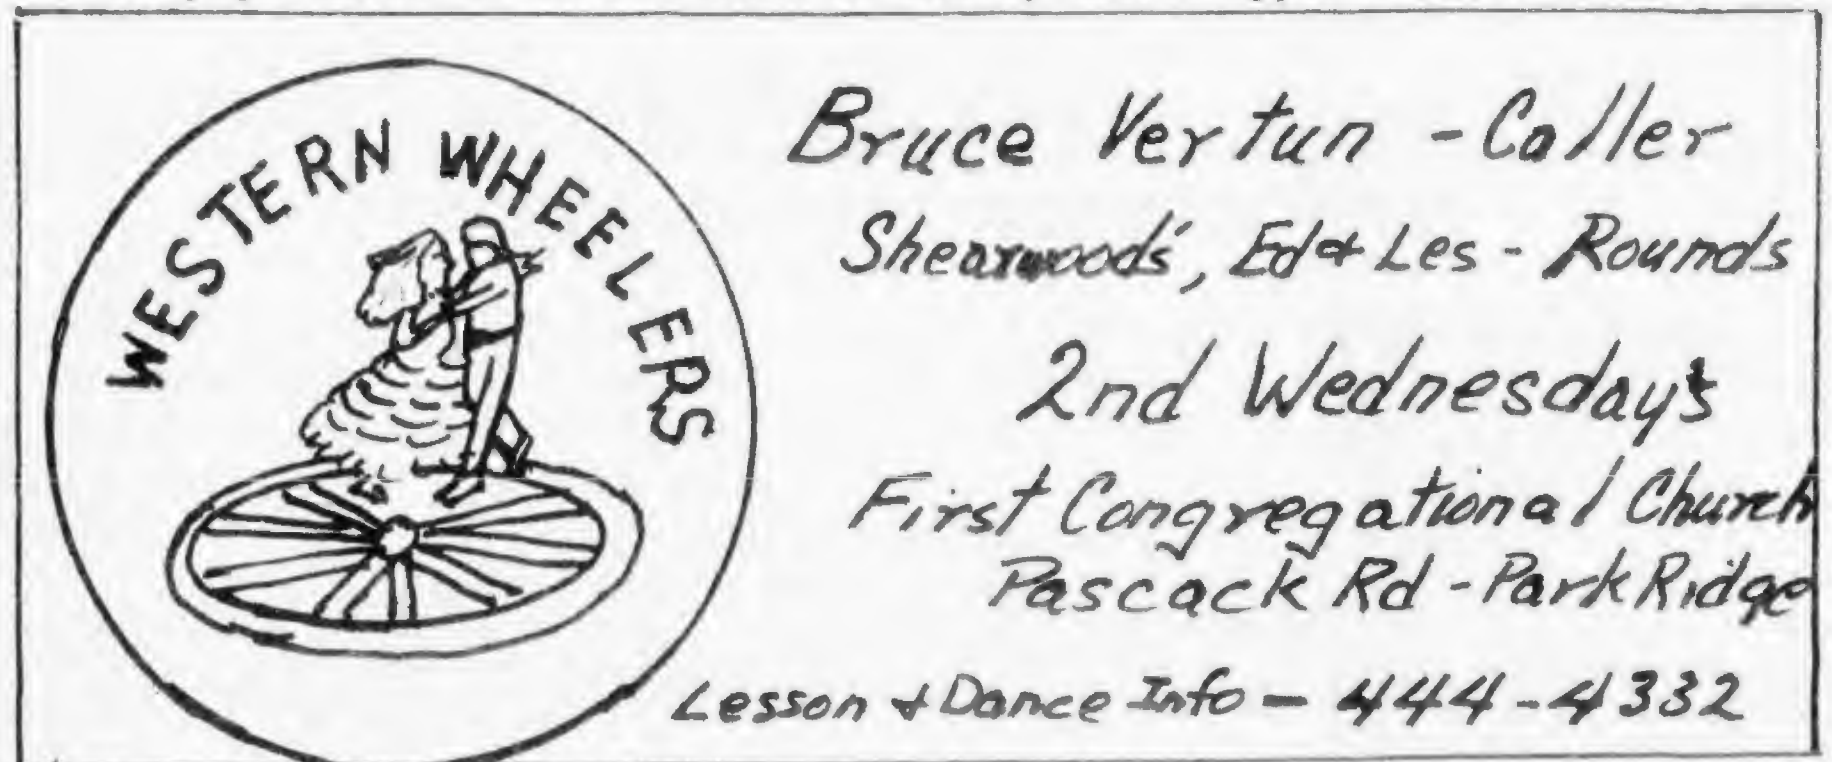 WESTERN WHEELERS
Bruce Vertun - Caller
Shearwoods', Ed & Les - Rounds
2nd Wednesday's
First Congregational Church
Pascack Rd - Park Ridge
Lesson & Dance Info - 444-4332